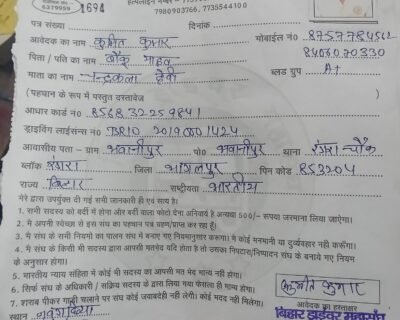 हेल्पलाइन नम्बर -
6379999 1694 7980903766, 7735544100
पत्र संख्या दिनांक
आवेदक का नाम कुमित कुमार मोबाईल नं० 8757784562
8406070330
पिता / पति का नाम बौकु यादव
माता का नाम चन्द्रकला देवी ब्लड ग्रुप A+
(पहचान के रूप में प्रस्तुत दस्तावेज
आधार कार्ड नं० 856832259841
ड्राइविंग लाईसेन्स नं०
आवासीय पता - ग्राम भवानीपुर पो० भवानीपुर थाना रंगरा चौक
ब्लॉक रंगरा जिला भागलपुर पिन कोड 853204
राज्य बिहार राष्ट्रीयता भारतीय
मेरे द्वारा उपर्युक्त दी गई सभी जानकारी ही एवं सत्य है।
1. सभी सदस्य को वर्दी में होना और वर्दी वाला फोटो देना अनिवार्य है अन्यथा 500/- रूपया जुरमाना लिया जाएगा।
2. मैं अपनी स्वेच्छा से इस संघ का पहचान पत्र ग्रहण/प्राप्त कर रहा हूँ।
3. मैं संघ के सभी नियमों का पालन संघ में बनाए गए नियमानुसार करूंगा। मैं कोई मनमानी या दुर्व्यवहार नहीं करूंगा।
4. मैं संघ के किसी भी सदस्य द्वारा आपसी मतभेद यदि होता है तो उसका निपटारा/निष्पादन संघ के बनाये गए नियम
के अनुसार होगा।
5. भारतीय न्याय संहिता में कोई भी सदस्य का आपसी मत भेद मान्य नहीं होगा।
6. सिर्फ संघ के अधिकारी / सक्रिय सदस्य के द्वारा लिया गया फैसला ही मान्य होगा।
7. शराब पीकर गाड़ी चलाने पर संघ कोई जवाबदेही नहीं लेगी। कोई मदद नहीं मिलेगा।
कुमित कुमार
स्थान आवेदक का हस्ताक्षर
बिहार ड्राइवर महासंघ